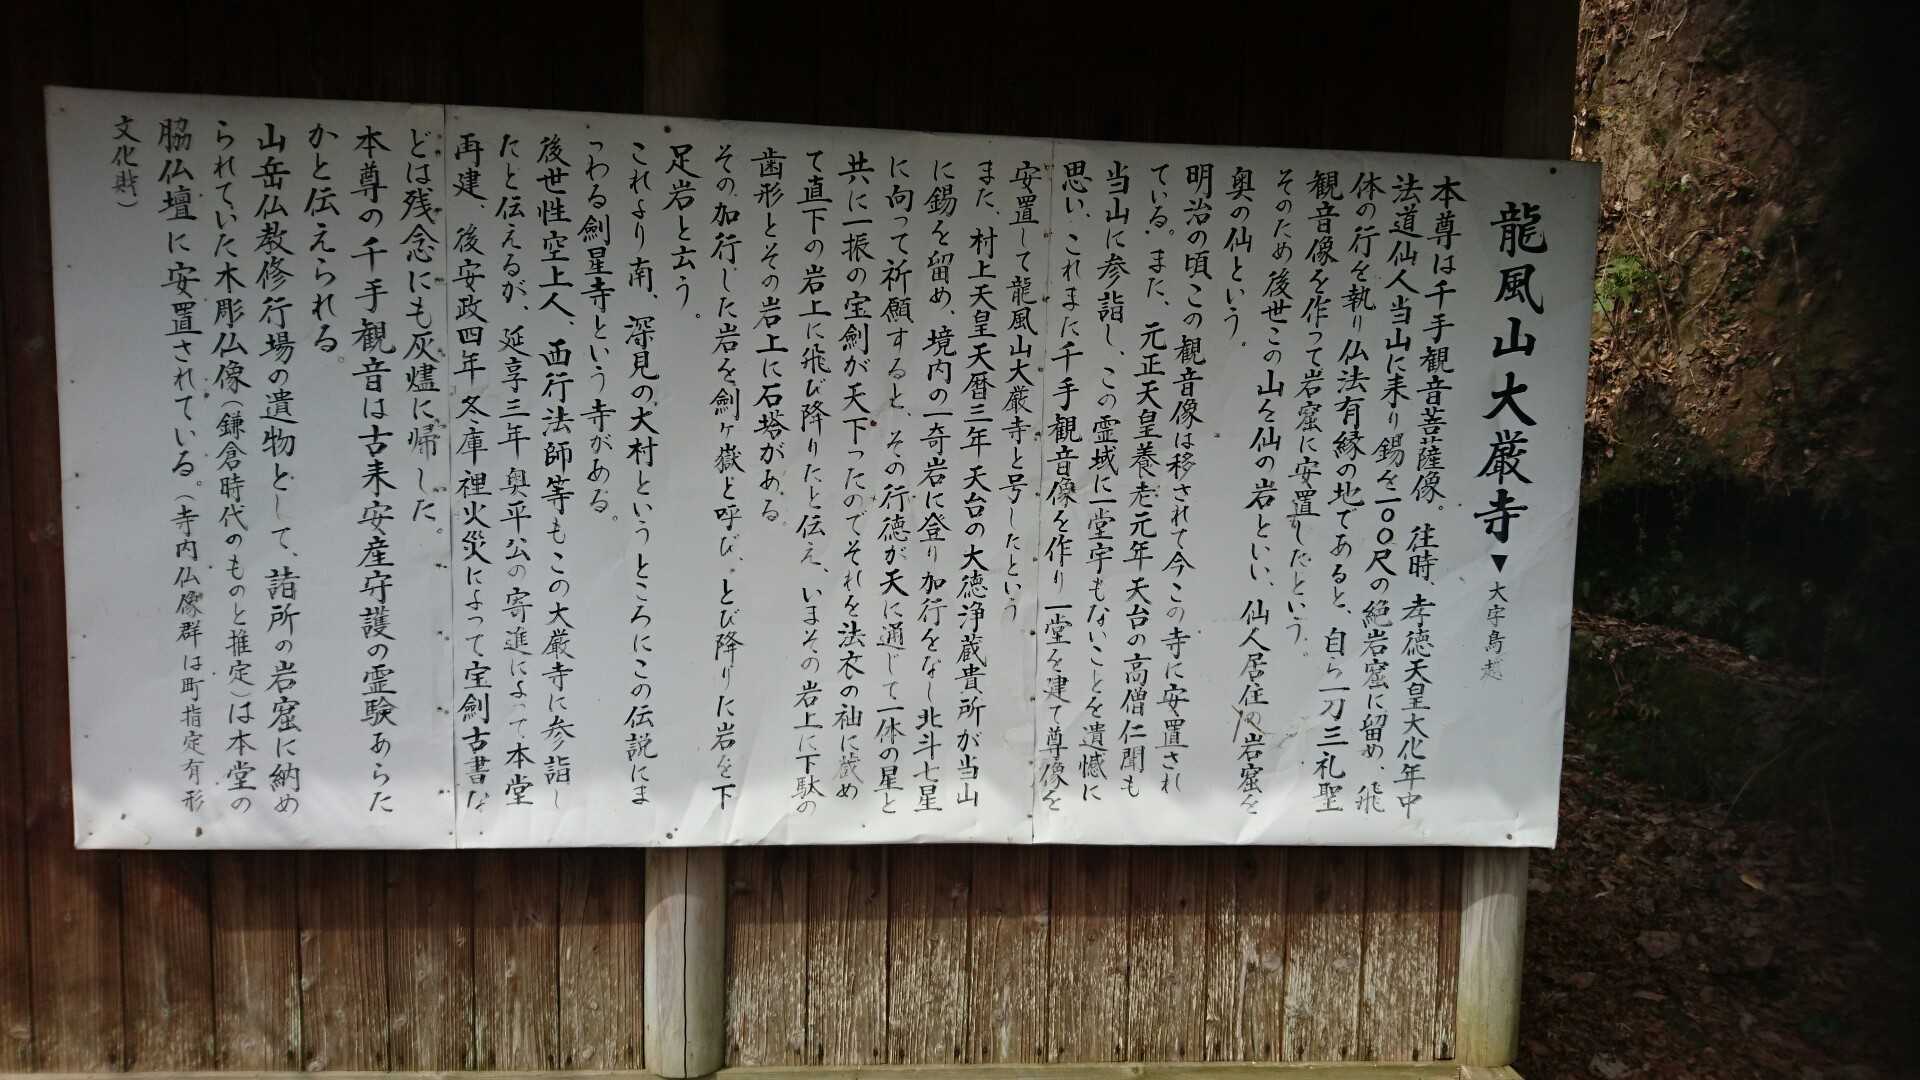 龍風山大厳寺▼大字鳥越
本尊は千手観音菩薩像。往時、孝徳天皇大化年中
法道仙人当山に来り錫を一〇〇尺の絶岩窟に留め、飛
体の行を執り仏法有縁の地であると、自ら一刀三礼聖
観音像を作って岩窟に安置したという。
そのため後世この山を仙の岩といい、仙人居住の岩窟を
奥の仙という。
明治の頃この観音像は移されて今この寺に安置され
ている。また、元正天皇養老元年天台の高僧仁聞も
当山に参詣し、この霊域に一堂宇もないことを遺憾に
思い、これまた千手観音像を作り一堂を建て尊像を
安置して龍風山大厳寺と号したという
また、村上天皇天暦三年天台の大徳浄蔵貴所が当山
に錫を留め、境内の一奇岩に登り加行をなし北斗七星
に向って祈願すると、その行徳が天に通じて一体の星と
共に一振の宝劍が天下ったのでそれを法衣の袖に蔵め
て直下の岩上に飛び降りたと伝え、いまその岩上に下駄の
歯形とその岩上に石塔がある。
その加行した岩を劍ヶ嶽と呼び、とび降りに岩を下
足岩と云う。
これより南、深見の大村というところにこの伝説にま
つわる劍星寺という寺がある。
後世性空上人、西行法師等もこの大厳寺に参詣し
たと伝えるが、延享三年奥平公の寄進によって本堂
再建、後安政四年冬庫裡火災によって宝劍古書な
どは残念にも灰燼に帰した。
本尊の千手観音は古来安産守護の霊験あらた
かと伝えられる。
山岳仏教修行場の遺物として、諸所の岩窟に納め
られていた木彫仏像（鎌倉時代のものと推定）は本堂の
脇仏壇に安置されている。（寺内仏像群は町指定有形
文化財）